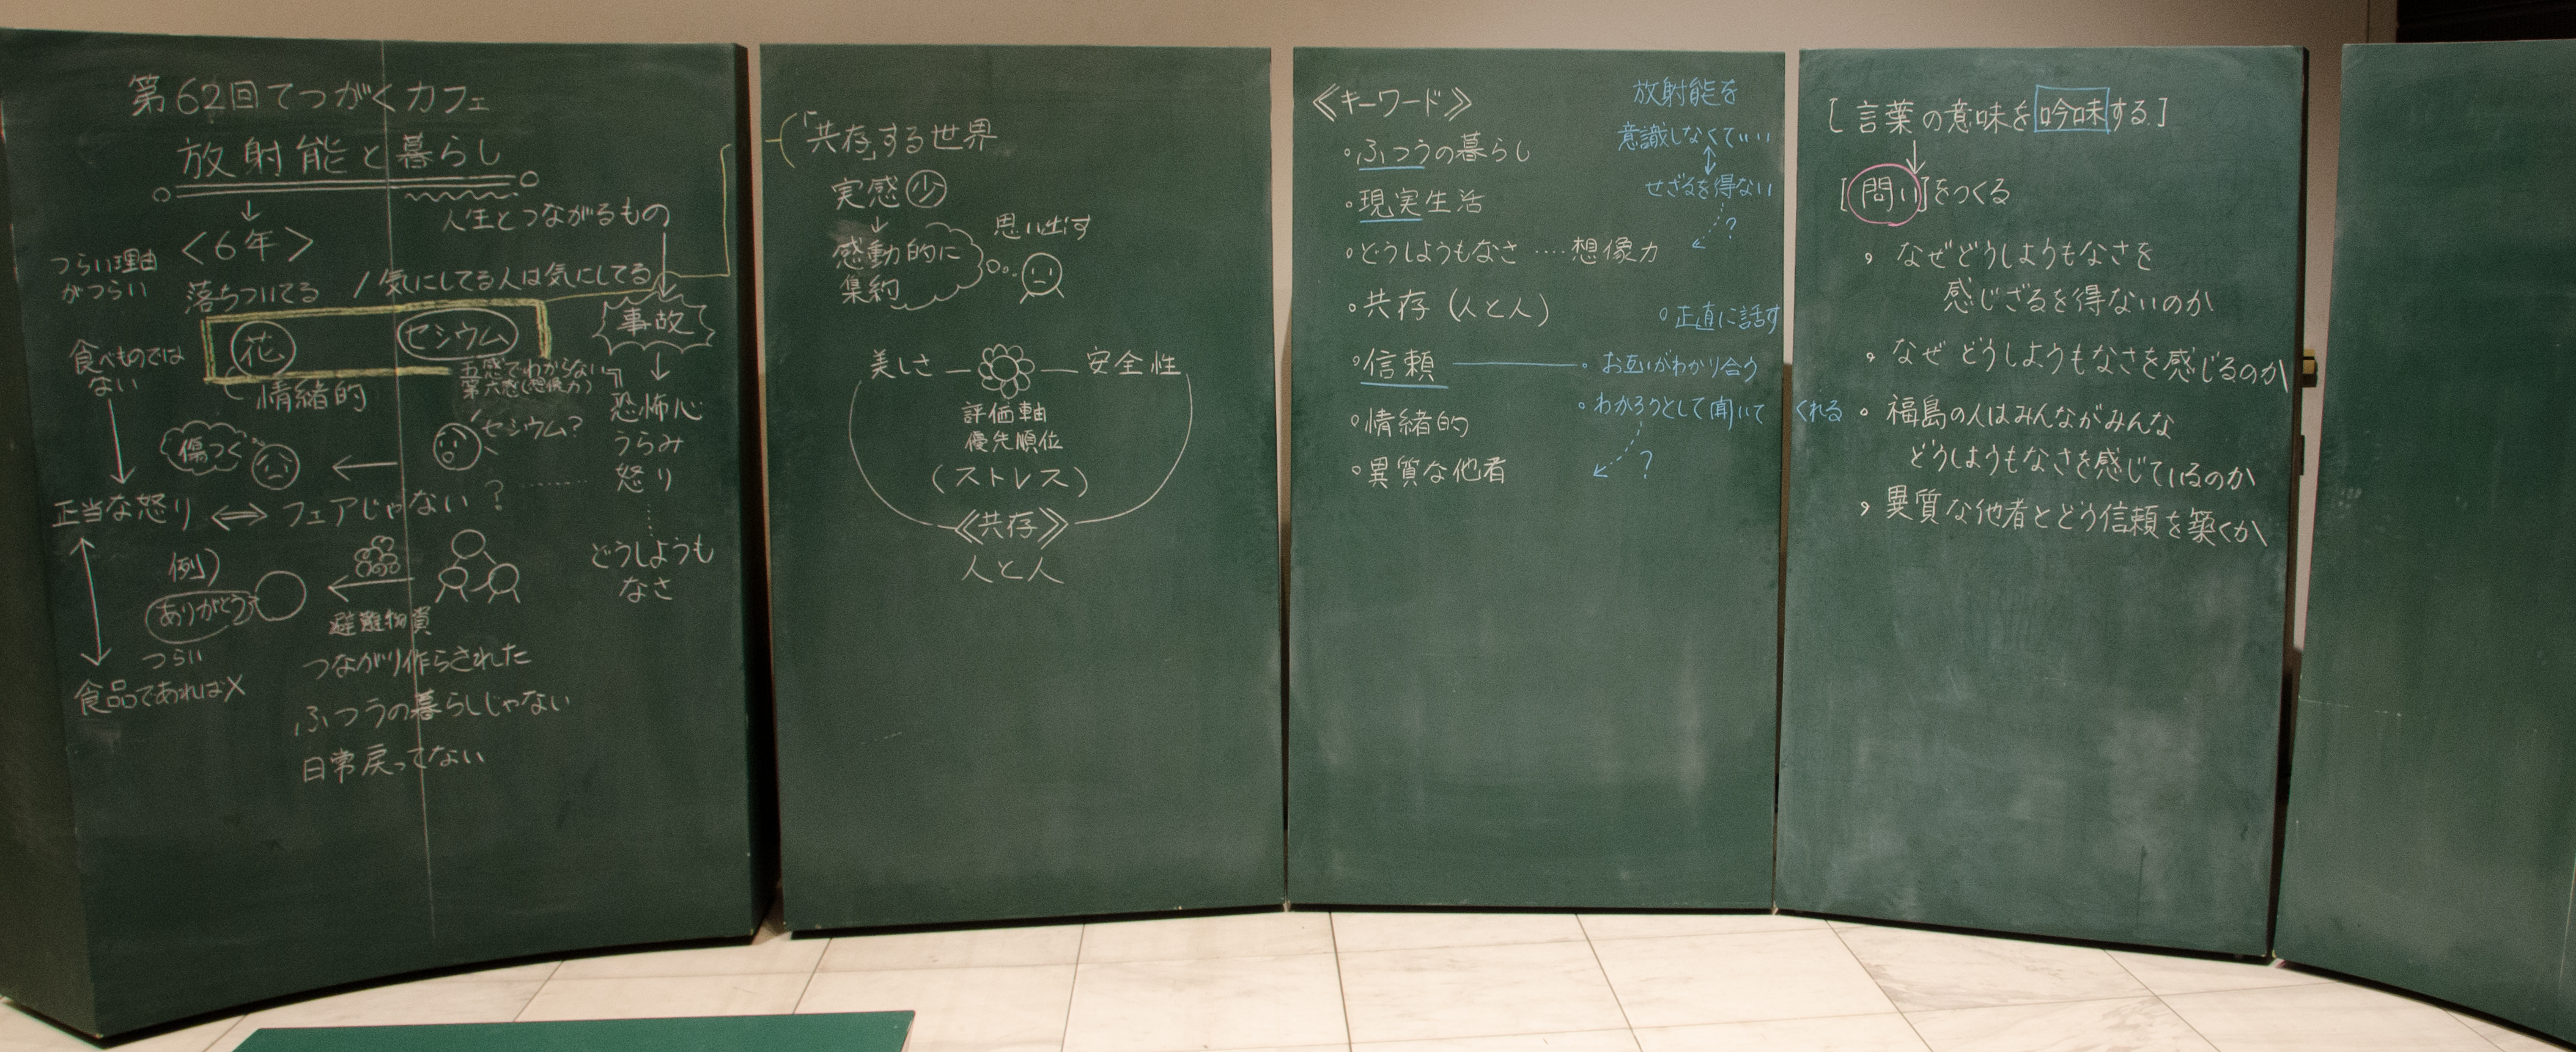 第62回てつがくカフェ
放射能と暮らし
人生とつながるもの
<6年>
つらい理由
がつらい
落ちついてる
/気にしてる人は気にしてる
花
セシウム
事故
食べものでは
ない
情緒的
五感でわからない
第六感(想像力)
恐怖心
うらみ
怒り
セシウム?
傷つく
正当な怒り ⇔ フェアじゃない?
どうしようも
なさ
例)
ありがとう
避難物資
つらい
つながり作らされた
食品であれば×
ふつうの暮らしじゃない
日常戻ってない
「共存」する世界
実感 少
↓
感動的に
集約
思い出す
美しさ
安全性
評価軸
優先順位
(ストレス)
《共存》
人と人
《キーワード》
◦ふつうの暮らし
◦現実生活
◦どうしようもなさ ‥‥想像力
◦共存(人と人)
◦信頼
◦情緒的
◦異質な他者
放射能を
意識しなくていい
せざるを得ない
?
◦正直に話す
◦お互いがわかり合う
◦わかろうとして聞いてくれる
?
[言葉の意味を吟味する]
↓
[問い]をつくる
• なぜどうしようもなさを
感じざるを得ないのか
• なぜ どうしようもなさを感じるのか
• 福島の人はみんながみんな
どうしようもなさを感じているのか
• 異質な他者とどう信頼を築くか